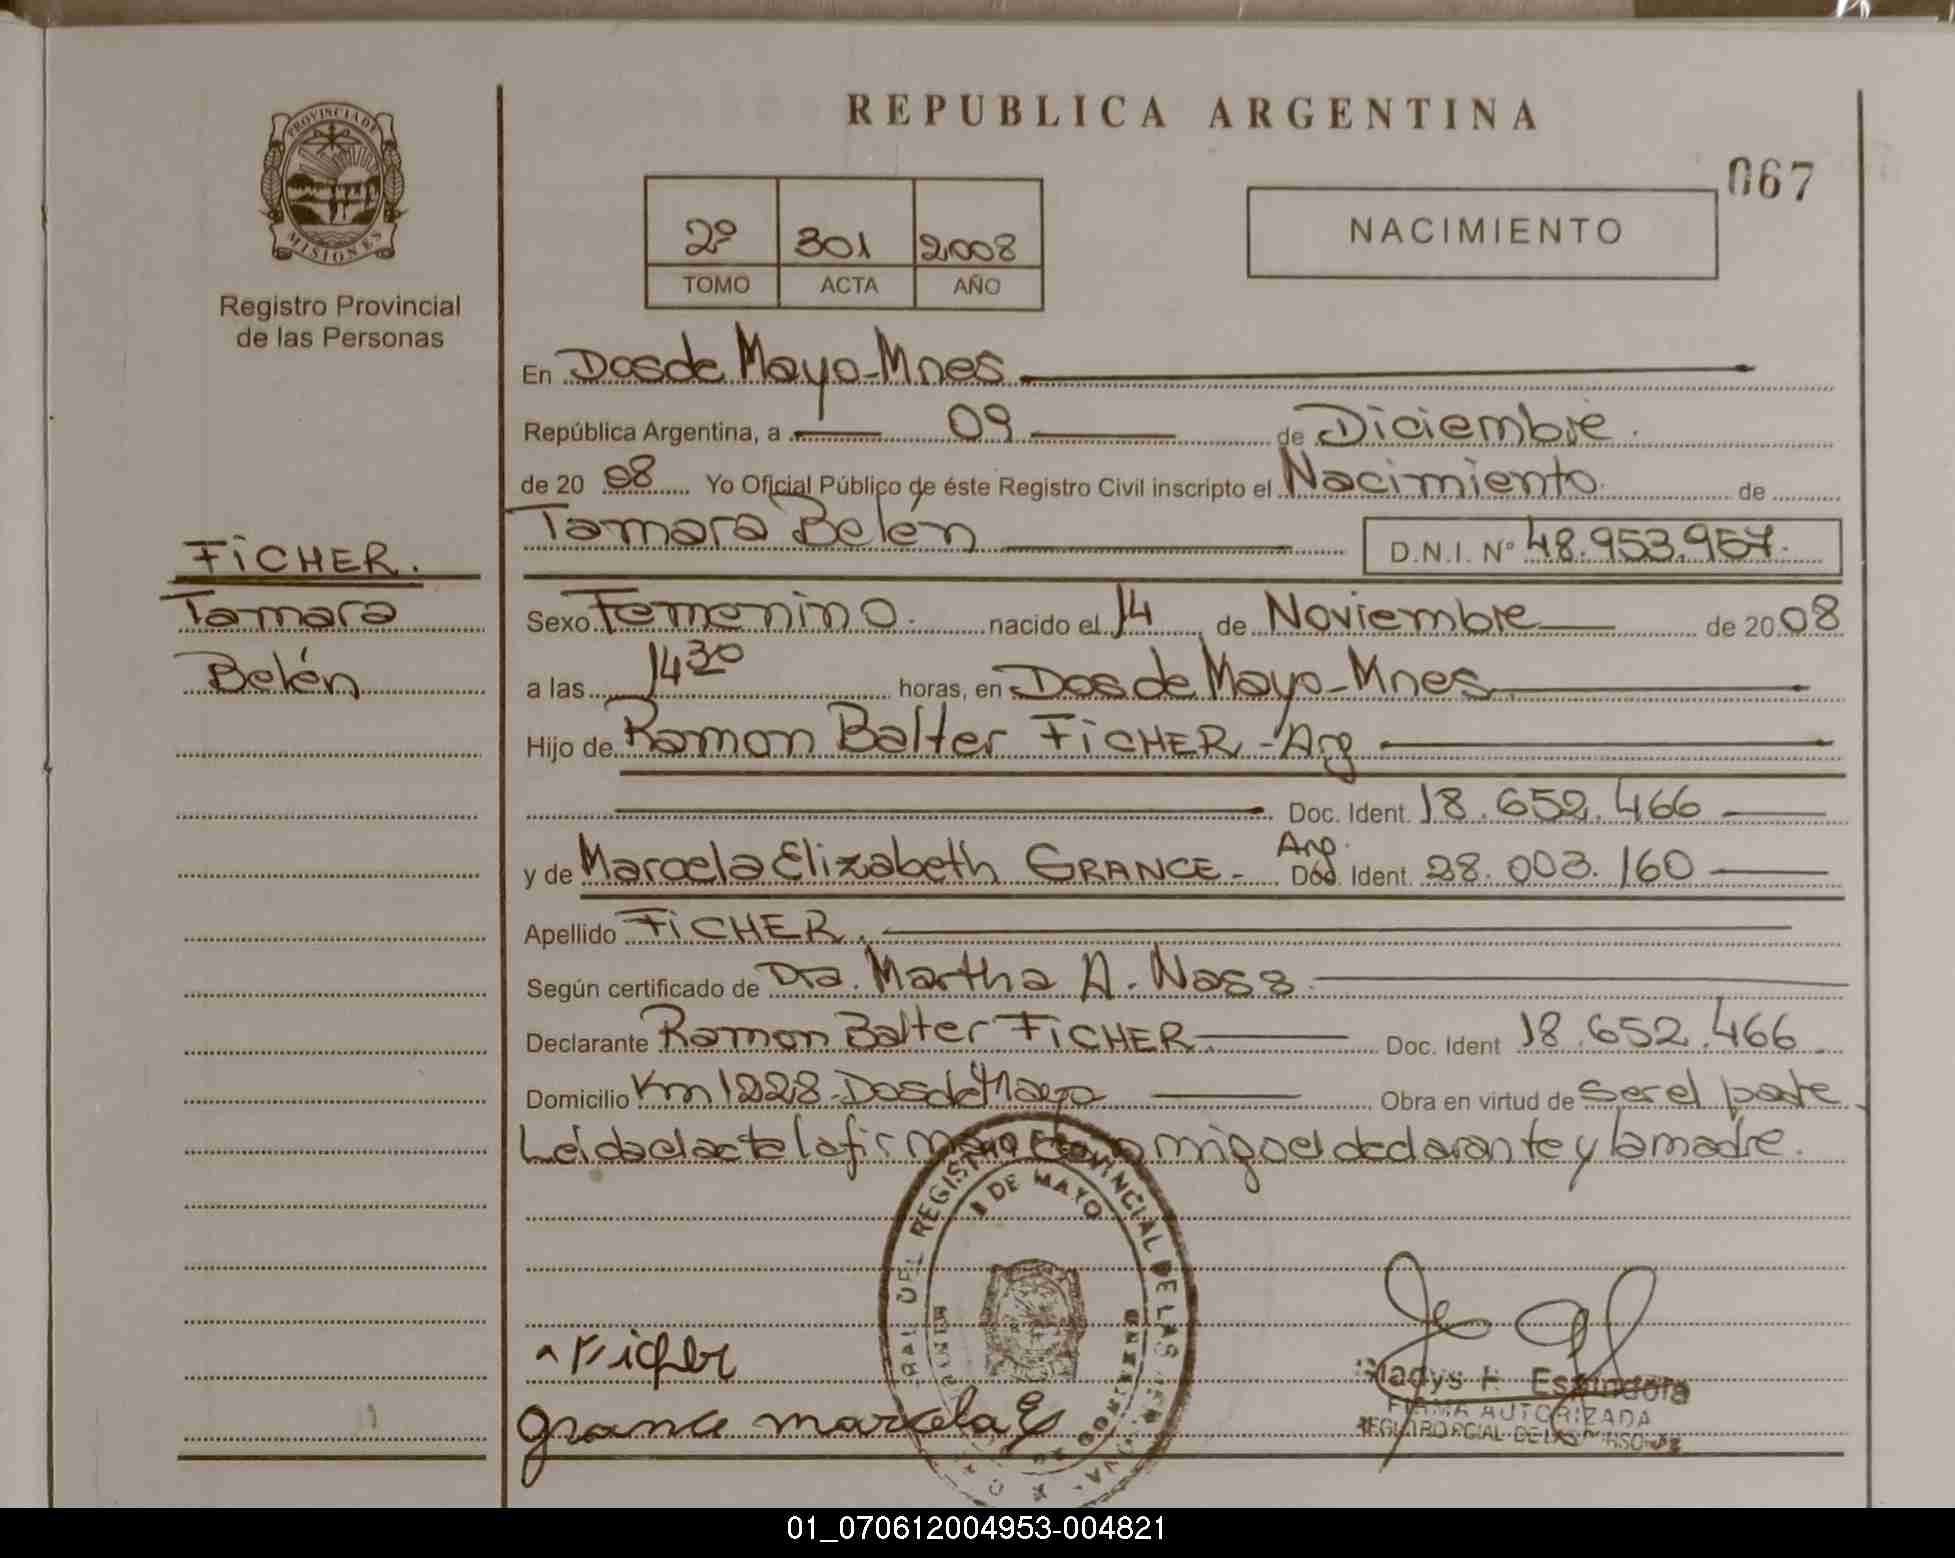 REPUBLICA ARGENTINA
067
PROVINCIA DE
MISIONES
Registro Provincial
de las Personas
2º 301 2008
TOMO ACTA AÑO
NACIMIENTO
En Dos de Mayo-Mnes
República Argentina, a 09 de Diciembre.
de 20 08 Yo Oficial Público de éste Registro Civil inscripto el Nacimiento de
Tamara Belén D.N.I. Nº 48.953.957.
FiCHER.
Tamara
Belén
Sexo Femenino. nacido el 14 de Noviembre de 20 08
a las 14 30 horas, en Dos de Mayo-Mnes
Hijo de Ramon Balter FiCHER-Arg
Doc. Ident. 18.652.466
y de Marcela Elizabeth GRANCE- Arg. Doc. Ident. 28.003.160
Apellido FiCHER.
Según certificado de Dra. Martha A. Nass
Declarante Ramon Balter FiCHER Doc. Ident 18.652.466
Domicilio Km 1228-Dos de Mayo Obra en virtud de ser el padre
Leída el acta la firma conmigo el declarante y la madre.
DEL REGISTRO PROVINCIAL DE LAS
DE MAYO
Ficher
Grance marcela E
Gladys F. Espindola
FIRMA AUTORIZADA
REGISTRO PCIAL DE LAS PERSONAS
01_070612004953-004821